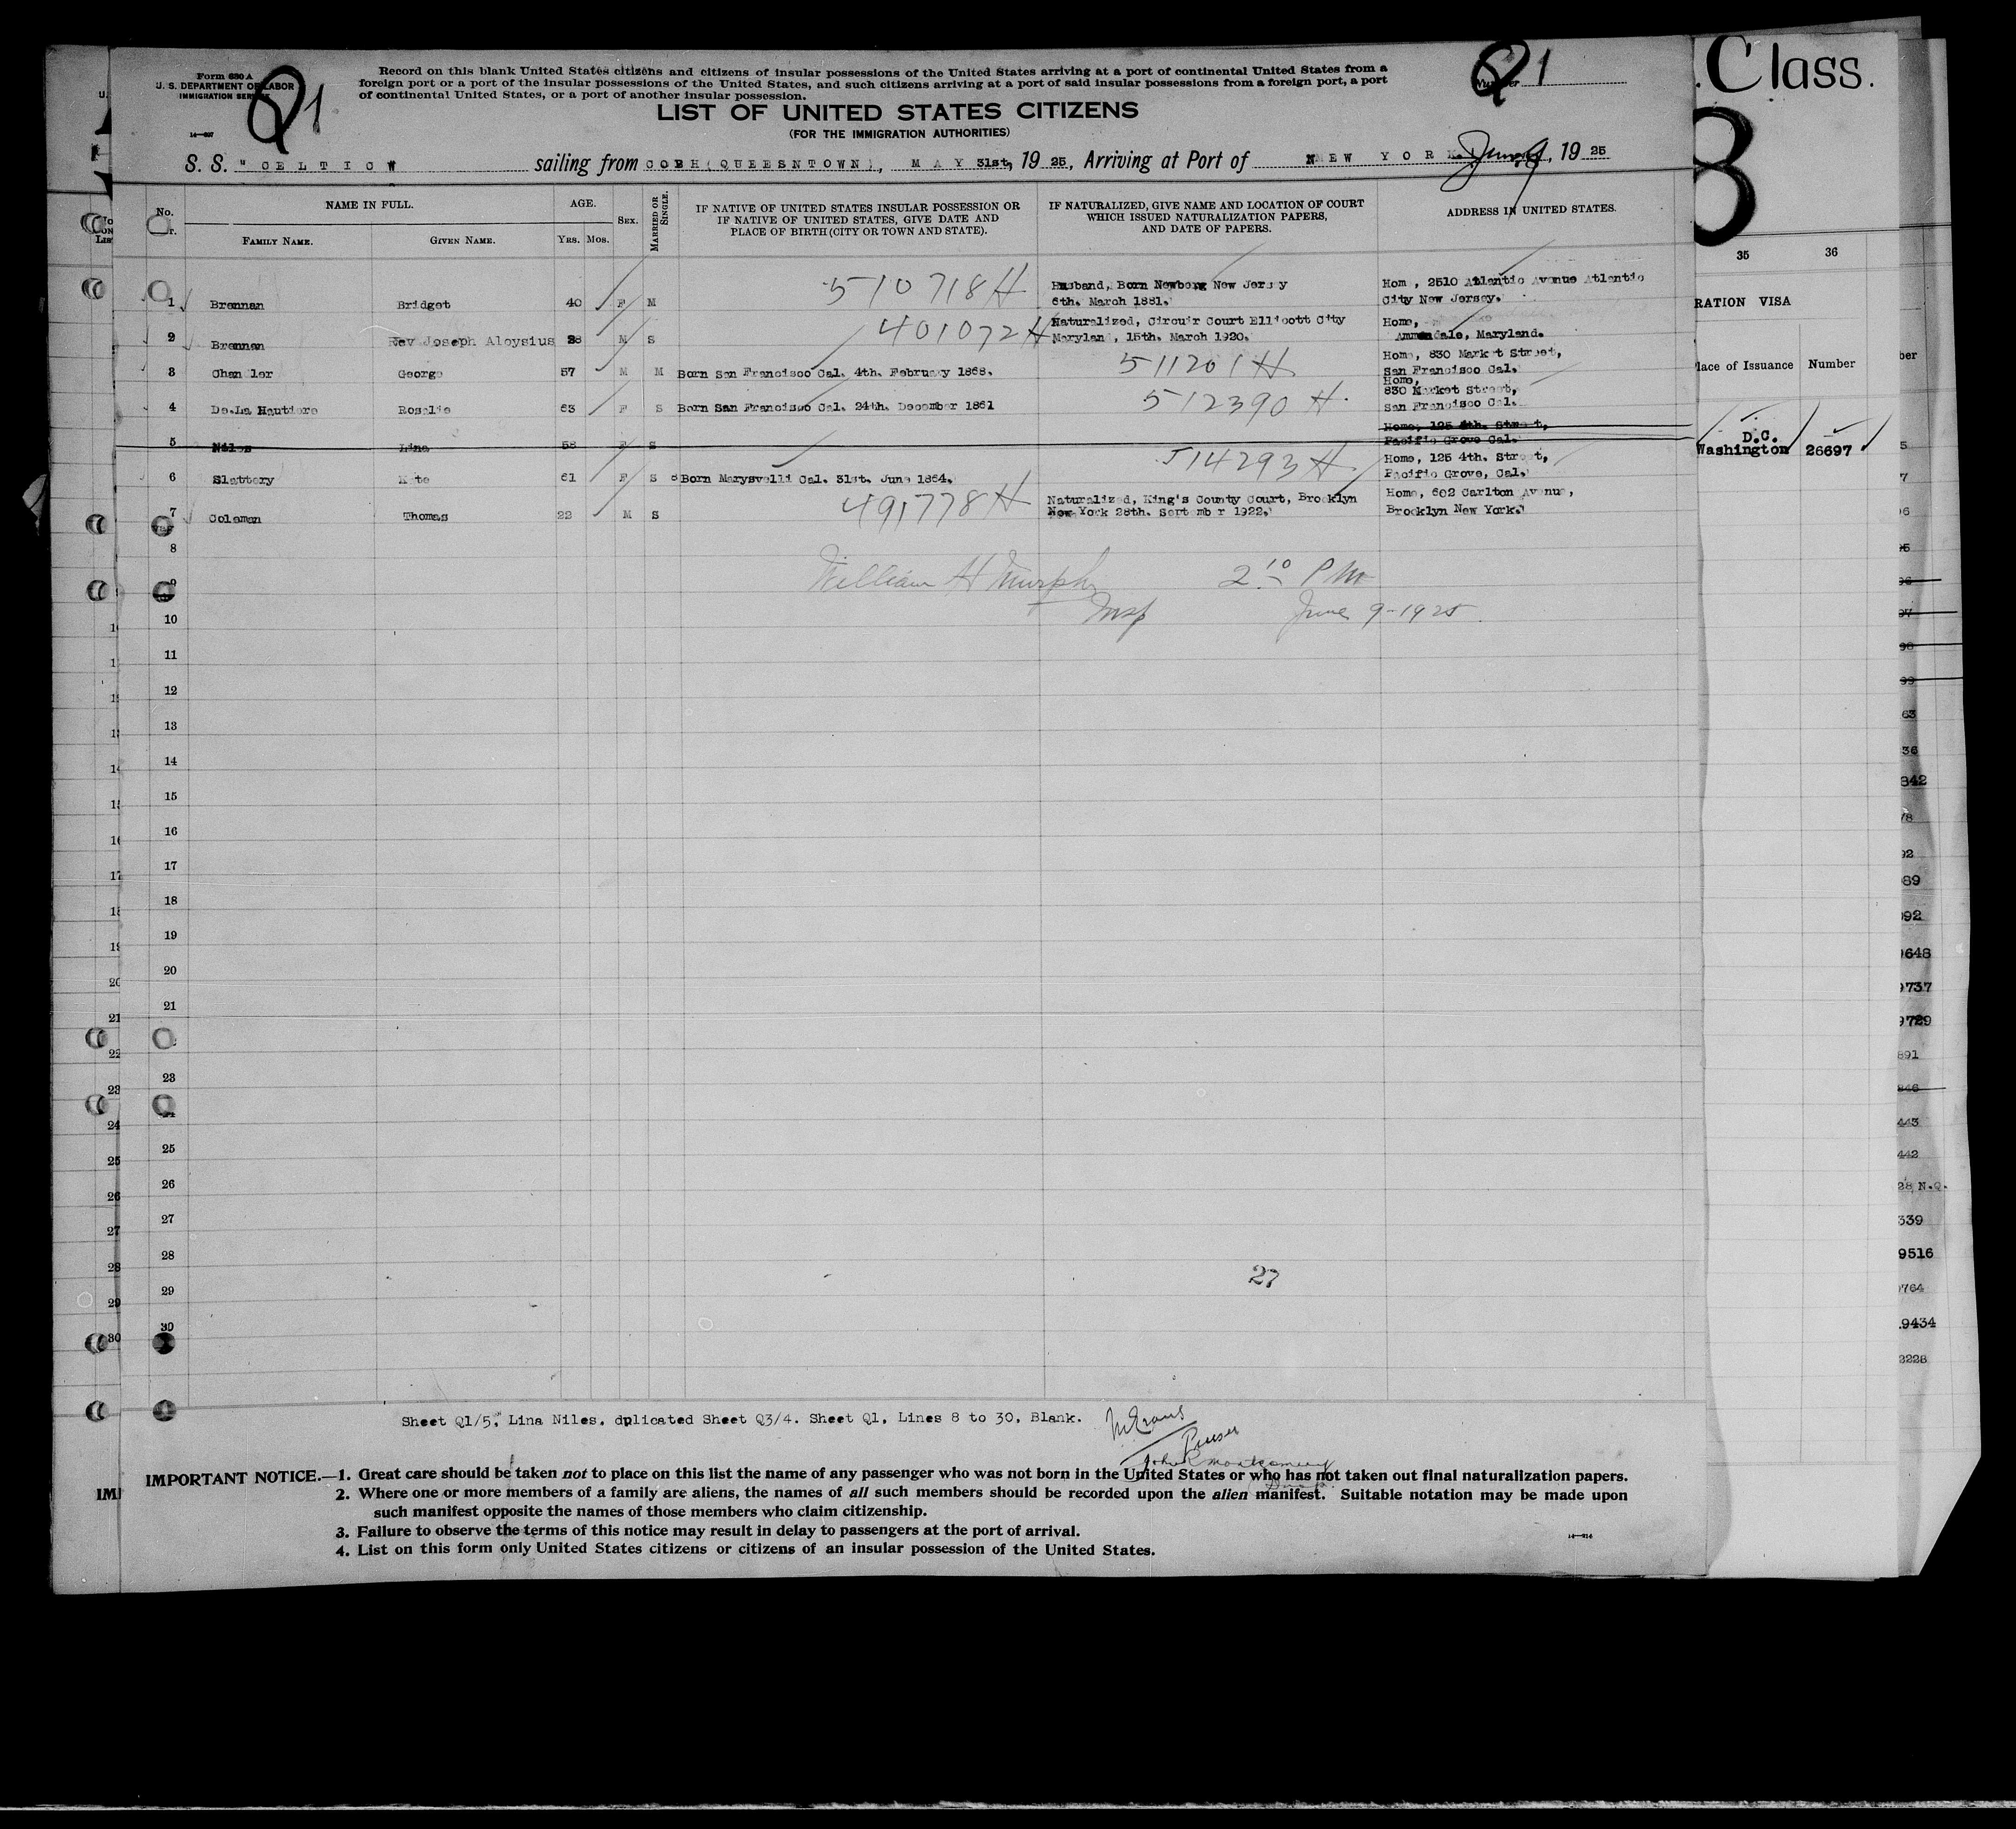 Form 630 A
U. S. DEPARTMENT OF LABOR
IMMIGRATION SERVICE
Q1
Record on this blank United States citizens and citizens of insular possessions of the United States arriving at a port of continental United States from a
foreign port or a port of the insular possessions of the United States, and such citizens arriving at a port of said insular possessions from a foreign port, a port
of continental United States, or a port of another insular possession.
Q1
Class.
LIST OF UNITED STATES CITIZENS
(FOR THE IMMIGRATION AUTHORITIES)
S. S. "CELTIC" sailing from COBH (QUEESNTOWN), MAY 31st, 1925, Arriving at Port of NEW YORK. June 9, 1925
No.
NAME IN FULL.
FAMILY NAME.
GIVEN NAME.
AGE.
YRS. MOS.
SEX.
MARRIED OR SINGLE.
IF NATIVE OF UNITED STATES INSULAR POSSESSION OR
IF NATIVE OF UNITED STATES, GIVE DATE AND
PLACE OF BIRTH (CITY OR TOWN AND STATE).
IF NATURALIZED, GIVE NAME AND LOCATION OF COURT
WHICH ISSUED NATURALIZATION PAPERS,
AND DATE OF PAPERS.
ADDRESS IN UNITED STATES.
35 36
RATION VISA
lace of Issuance Number
510718H Husband, Born Newborg New Jersy Hom , 2510 Atlantic Avenue Atlantic
1 Brennan Bridget 40 F M 6th. March 1881. City New Jersey.
401072H Naturalized, Circuir Court Ellicott City Home,
2 Brennan Rev Joseph Aloysius 38 M S Marylan , 15th. March 1920. Ammendale, Maryland.
Home, 830 Market Street,
3 Chandler George 57 M M Born San Francisco Cal. 4th. February 1868. 511201H San Francisco Cal.
Home,
830 Market Street,
4 De.La Hautiere Rosalie 63 F S Born San Francisco Cal. 24th. December 1861 512390 H. San Francisco Cal.
Home, 125 4th. Street,
5 Niles Lina 58 F S Pacific Grove Cal.
D.C.
Washington 26697
Home, 125 4th. Street,
6 Slattery Kate 61 F S Born Marysvelli Cal. 31st. June 1864. 514293H Pacific Grove, Cal.
491778H Naturalized, King's County Court, Brooklyn Home, 602 Carlton Avenue,
7 Coleman Thomas 22 M S New York 28th. Septembr 1922. Brooklyn New York.
8
William H Murphy 2.10 PM
9
Insp June 9-1925
10
11
12
13
14
15
16
17
18
19
20
21
23
25
26
27
28
27
29
30
Sheet Q1/5, Lina Niles, duplicated Sheet Q3/4. Sheet Q1, Lines 8 to 30, Blank.
McEvans
Purser
John R Montgomery
IMPORTANT NOTICE.—1. Great care should be taken not to place on this list the name of any passenger who was not born in the United States or who has not taken out final naturalization papers.
2. Where one or more members of a family are aliens, the names of all such members should be recorded upon the alien manifest. Suitable notation may be made upon
such manifest opposite the names of those members who claim citizenship.
3. Failure to observe the terms of this notice may result in delay to passengers at the port of arrival.
4. List on this form only United States citizens or citizens of an insular possession of the United States.